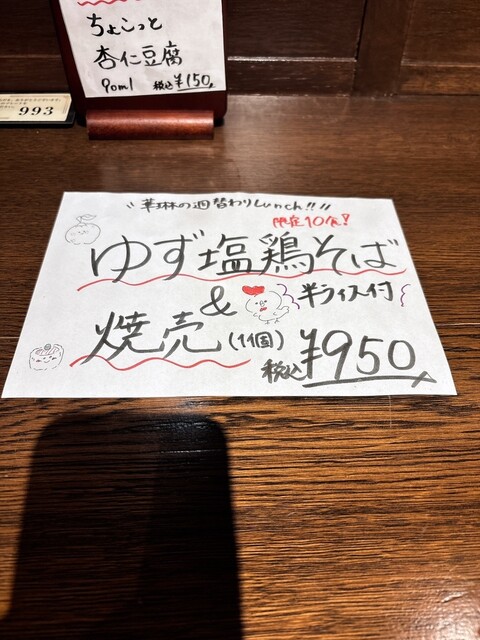 ちょこっと
杏仁豆腐
90ml 税込¥150
993
〝華琳の週替わりLunch!!〟
限定10食!
ゆず塩鶏そば
& 半ライス付
焼売(1個)
税込¥950